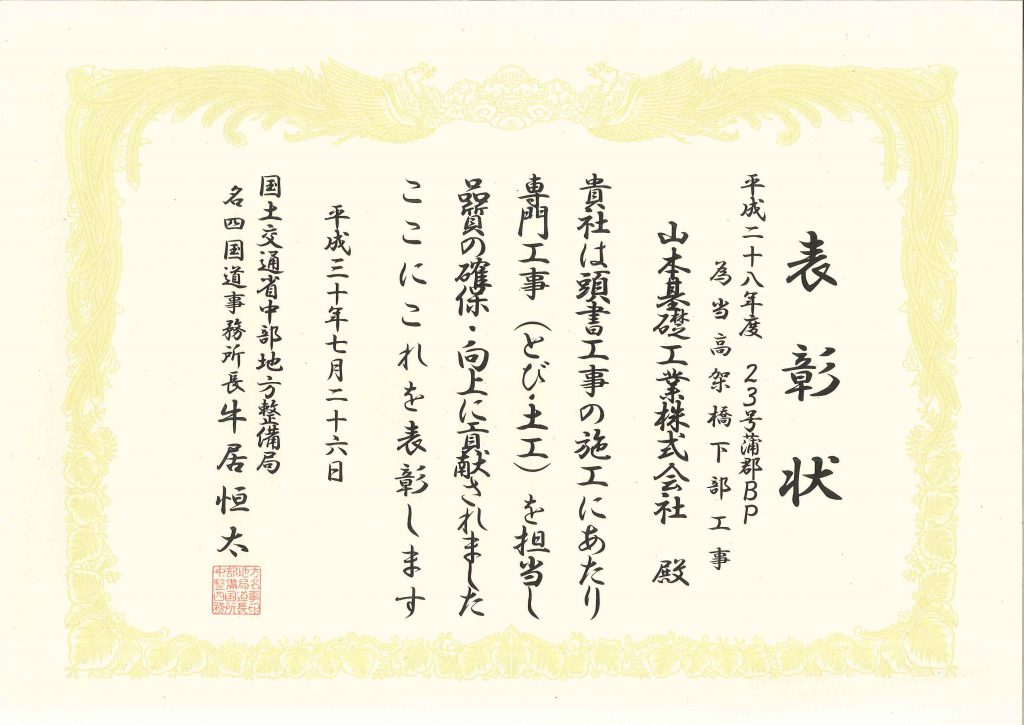 表彰状
平成二十八年度　23号蒲郡BP
為当高架橋下部工事
山本基礎工業株式会社　殿
貴社は頭書工事の施工にあたり
専門工事（とび・土工）を担当し
品質の確保・向上に貢献されました
ここにこれを表彰します
平成三十年七月二十六日
国土交通省中部地方整備局
名四国道事務所長　牛居恒太